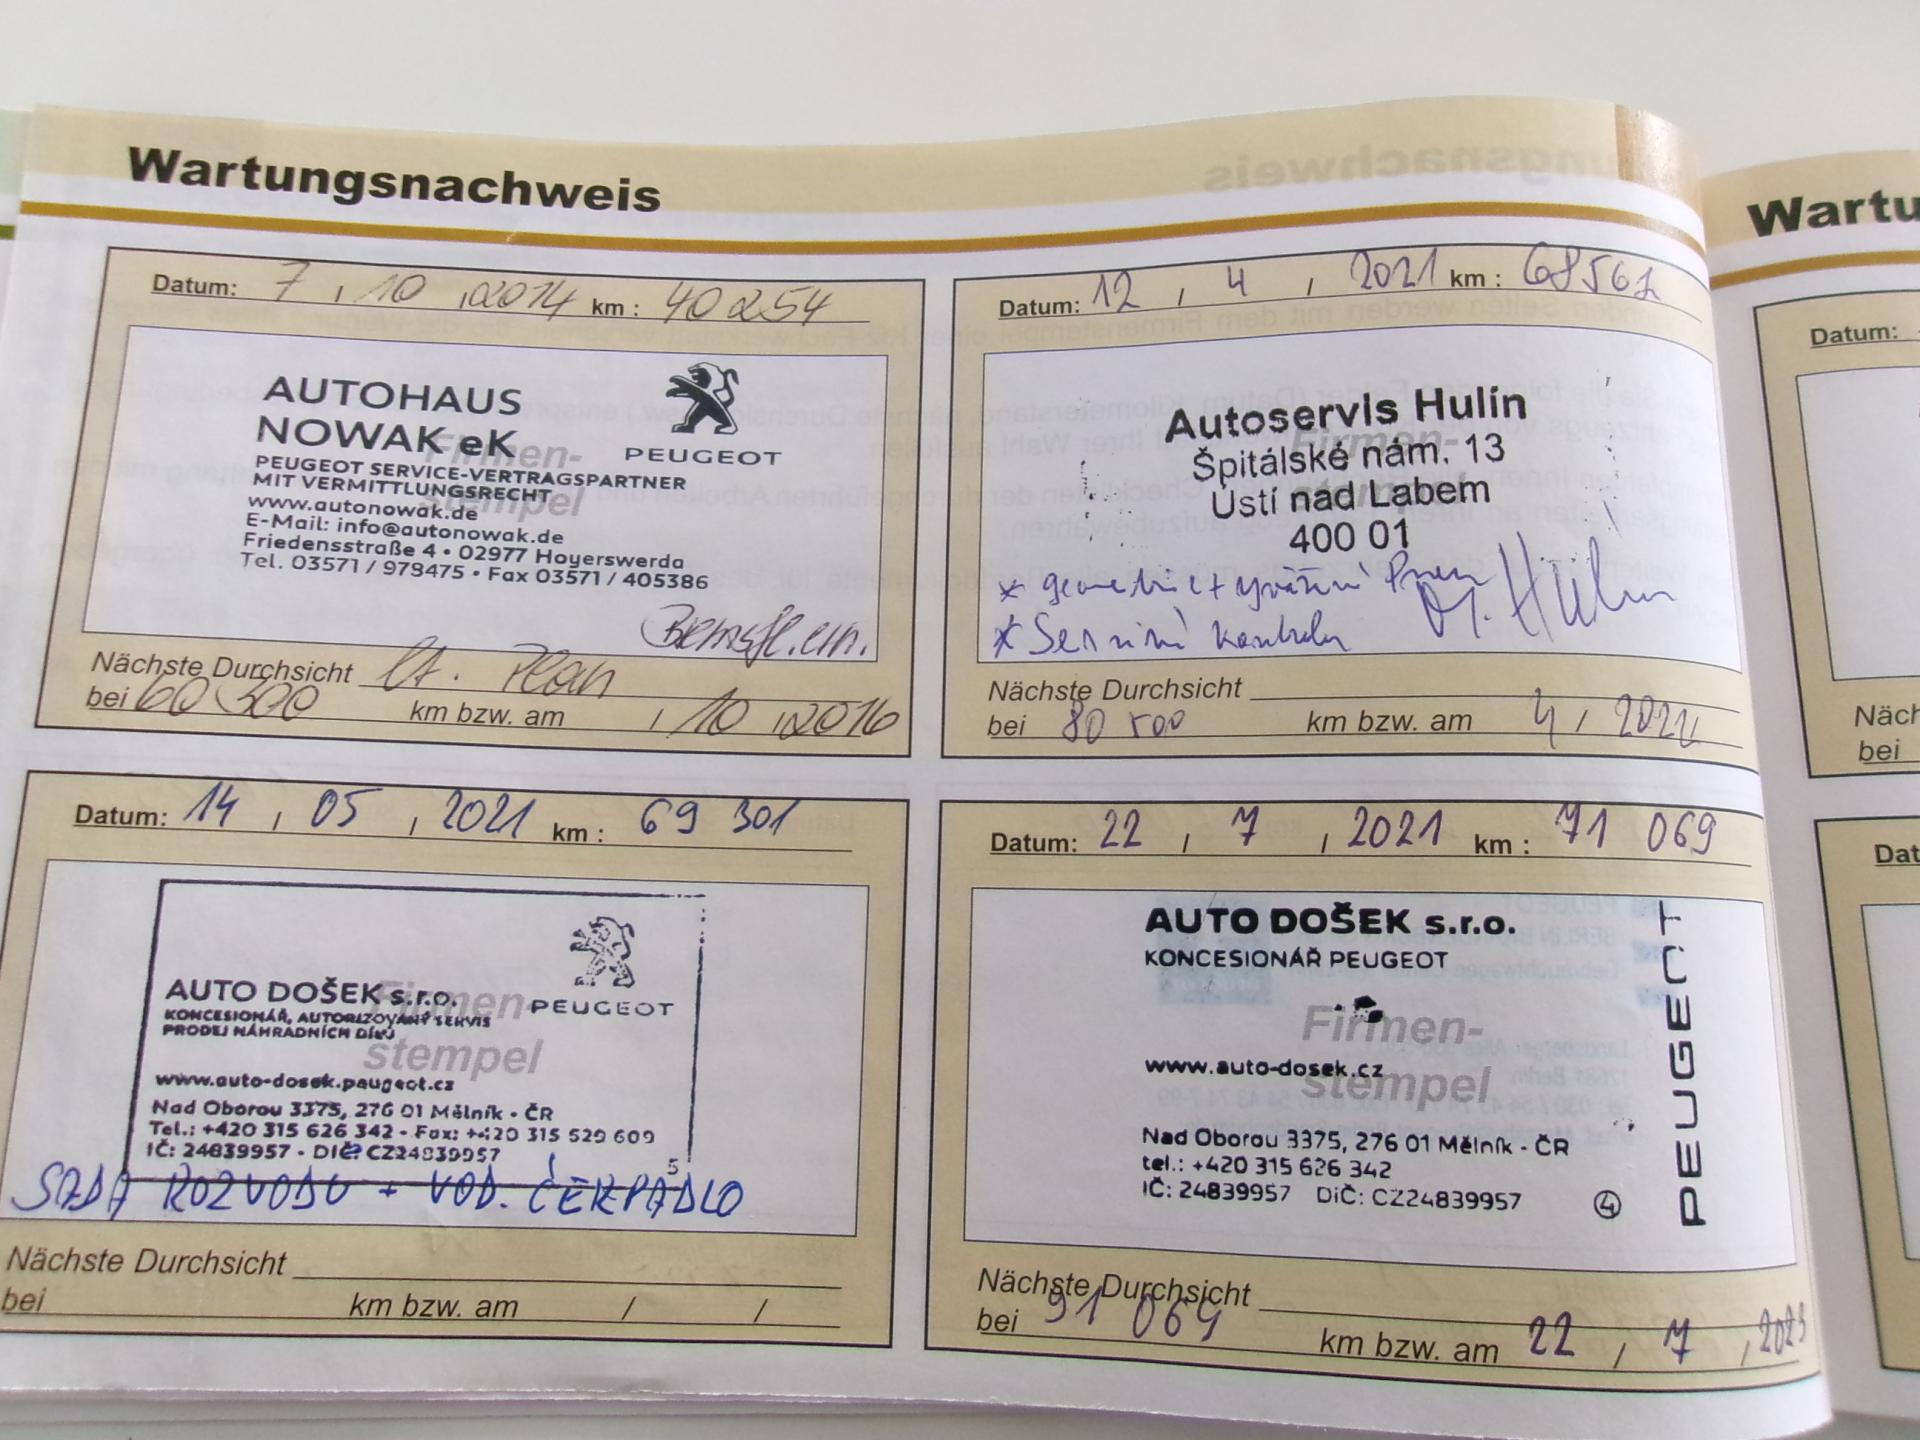 Wartungsnachweis
Datum: 7 , 10 , 2014 km : 40 254
AUTOHAUS
NOWAK eK
PEUGEOT
PEUGEOT SERVICE-VERTRAGSPARTNER
MIT VERMITTLUNGSRECHT
www.autonowak.de
E-Mail: info@autonowak.de
Friedensstraße 4 • 02977 Hoyerswerda
Tel. 03571 / 978475 • Fax 03571 / 405386
Firmen-
stempel
Nächste Durchsicht lt. Plan
bei 60 300 km bzw. am / 10 , 2016
Datum: 12 , 4 , 2021 km : 68561
Autoservis Hulín
Špitálské nám. 13
Ustí nad Labem
400 01
Firmen-
stempel
* geometrie + vyvážení Pneu
* Servisní kontrola M. Hulín
Nächste Durchsicht
bei 80 500 km bzw. am 4 / 2022
Datum: 14 , 05 , 2021 km : 69 301
PEUGEOT
AUTO DOŠEK s.r.o.
KONCESIONÁŘ, AUTORIZOVANÝ SERVIS
PRODEJ NÁHRADNÍCH DÍLŮ
Firmen-
stempel
www.auto-dosek.peugeot.cz
Nad Oborou 3375, 276 01 Mělník • ČR
Tel.: +420 315 626 342 • Fax: +420 315 629 609
IČ: 24839957 • DIČ: CZ24839957
5
SADA ROZVODU + VOD. ČERPADLO
Nächste Durchsicht
bei km bzw. am / /
Datum: 22 , 7 , 2021 km : 71 069
AUTO DOŠEK s.r.o.
KONCESIONÁŘ PEUGEOT
Firmen-
stempel
www.auto-dosek.cz
Nad Oborou 3375, 276 01 Mělník • ČR
tel.: +420 315 626 342
IČ: 24839957 DIČ: CZ24839957
4
PEUGEOT
Nächste Durchsicht
bei 91 069 km bzw. am 22 / 7 , 2023
Wartu
Datum:
Näch
bei
Dat